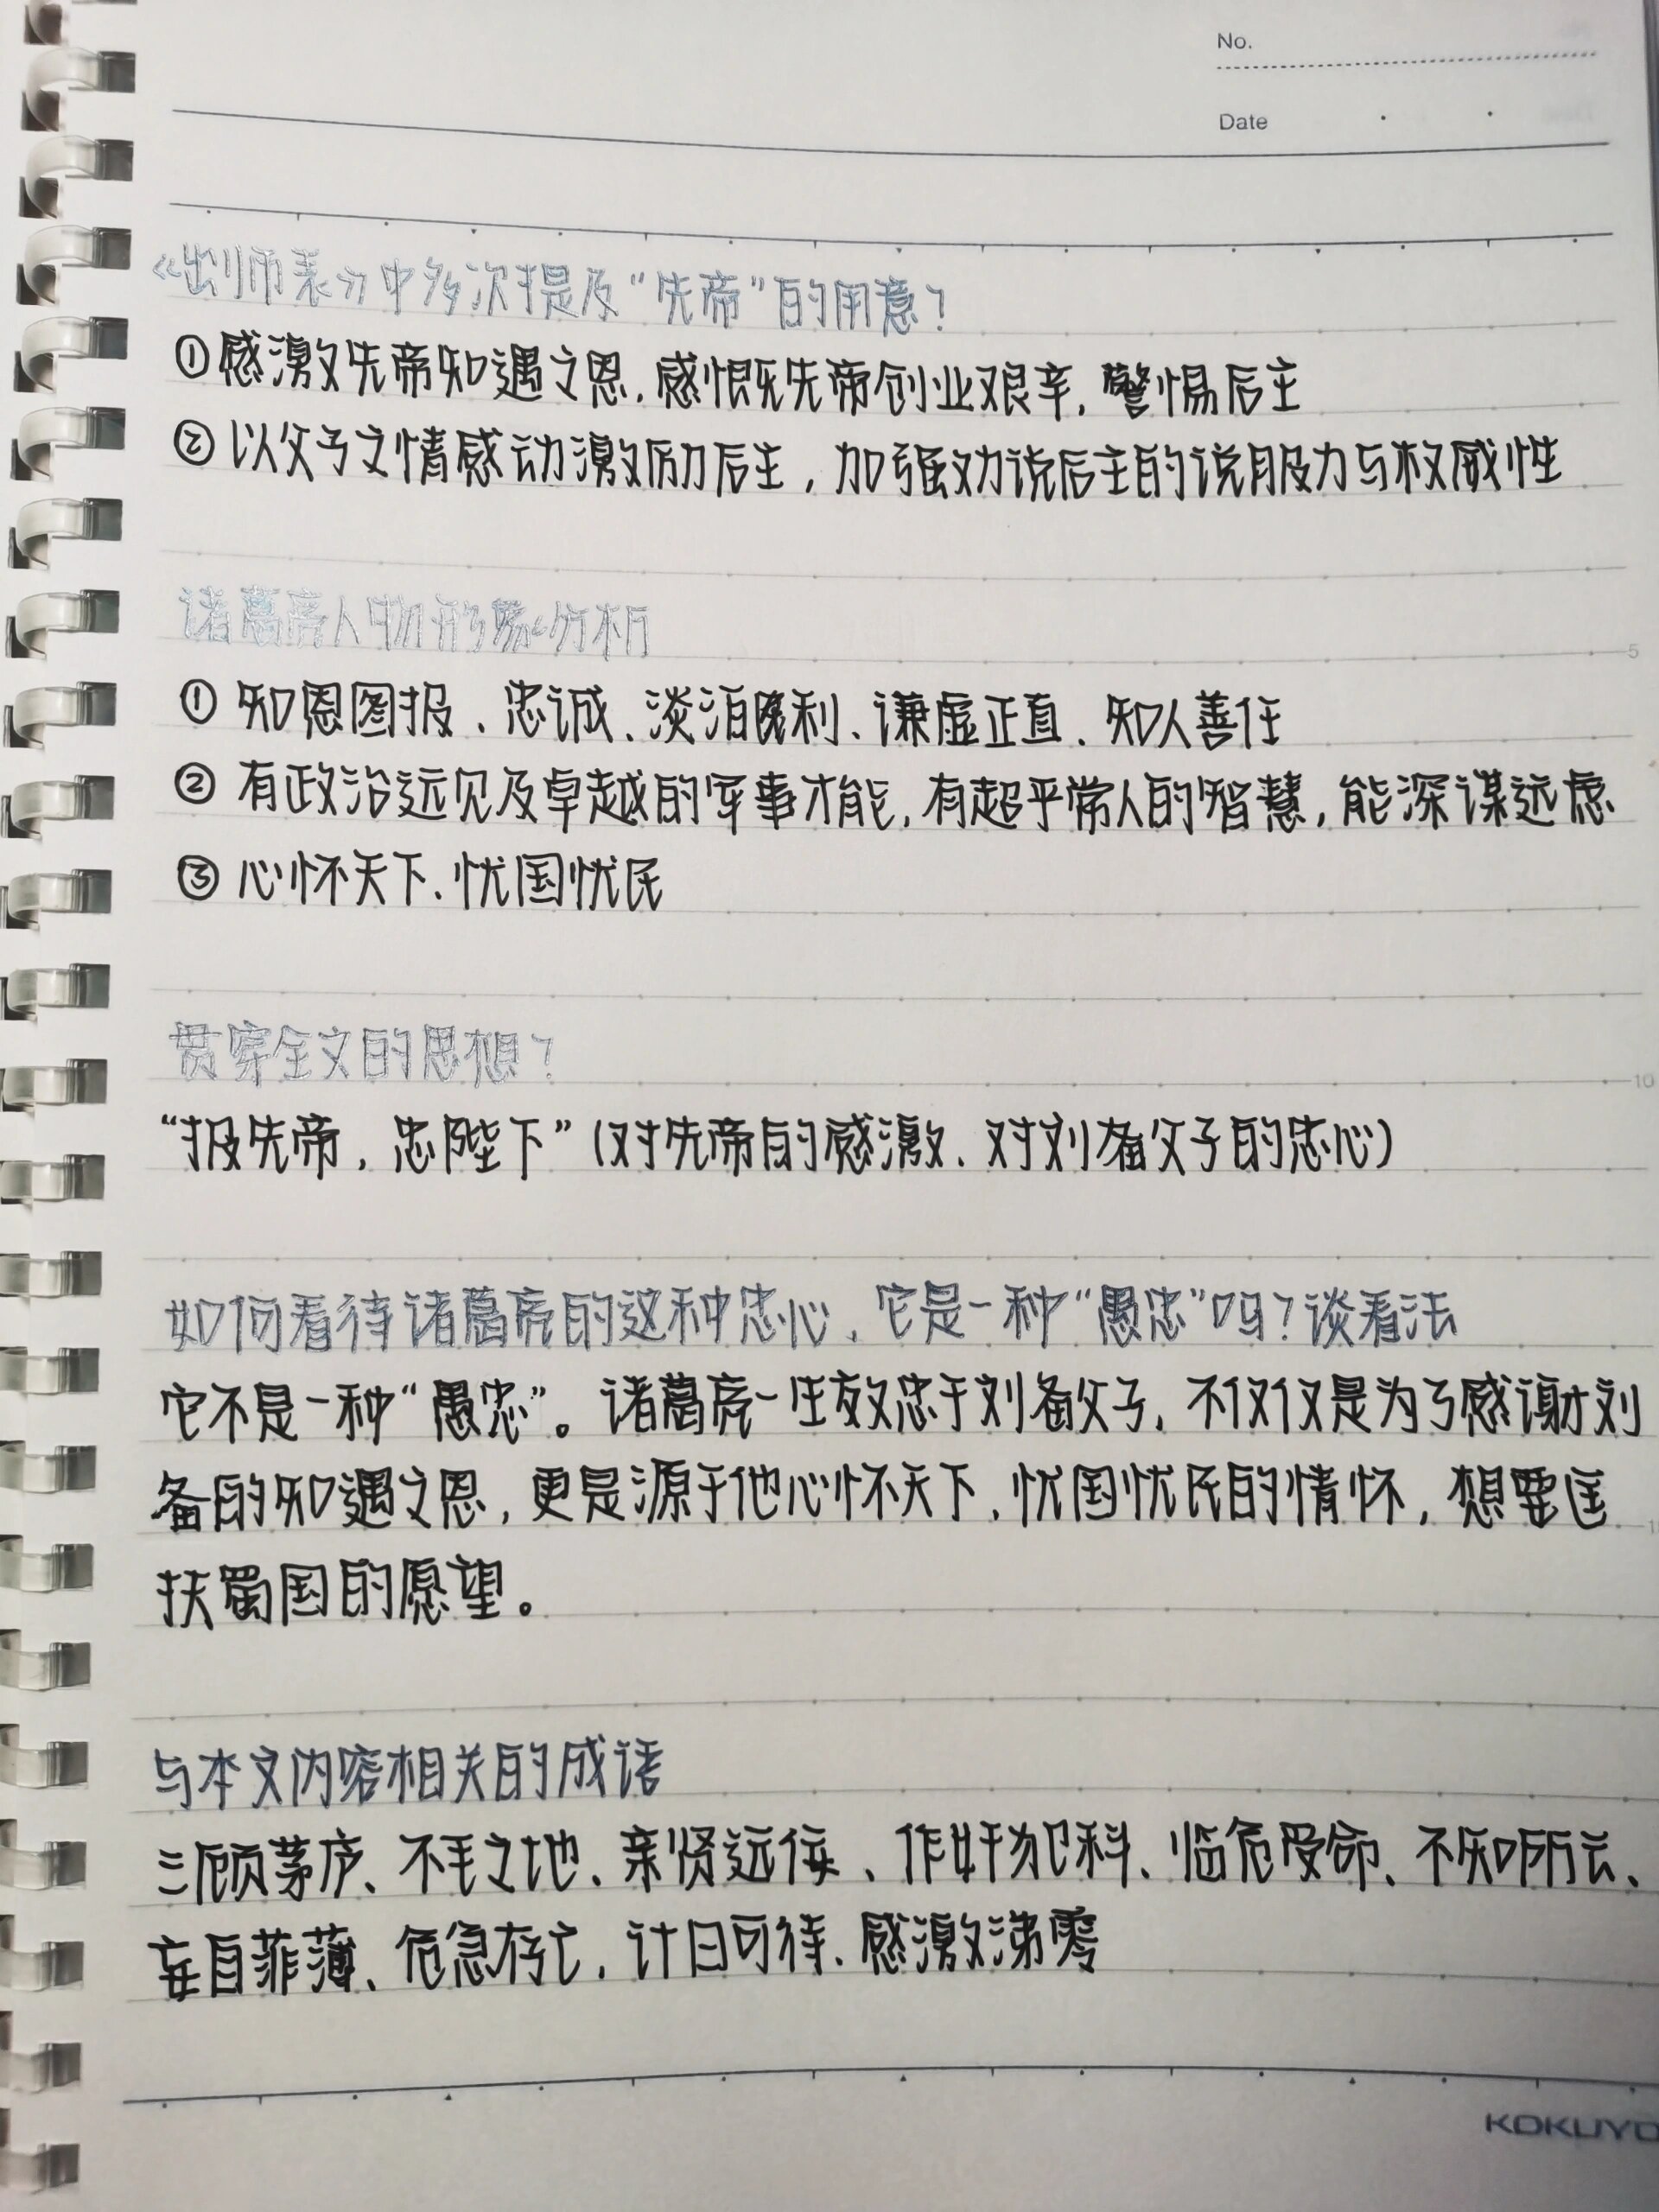 No.
Date
《出师表》中多次提及“先帝”的用意？
①感激先帝知遇之恩，感慨先帝创业艰辛，警惕后主
②以父子之情感动激励后主，加强劝说后主的说服力与权威性
诸葛亮人物形象分析
5
①知恩图报、忠诚、淡泊名利、谦虚正直、知人善任
②有政治远见及卓越的军事才能，有超乎常人的智慧，能深谋远虑
③心怀天下、忧国忧民
贯穿全文的思想？
10
“报先帝，忠陛下”（对先帝的感激、对刘备父子的忠心）
如何看待诸葛亮的这种忠心，它是一种“愚忠”吗？谈看法
它不是一种“愚忠”。诸葛亮一生效忠于刘备父子，不仅仅是为了感谢刘
备的知遇之恩，更是源于他心怀天下、忧国忧民的情怀，想要匡
扶蜀国的愿望。
与本文内容相关的成语
三顾茅庐、不毛之地、亲贤远佞、作奸犯科、临危受命、不知所云、
妄自菲薄、危急存亡、计日可待、感激涕零
KOKUYO